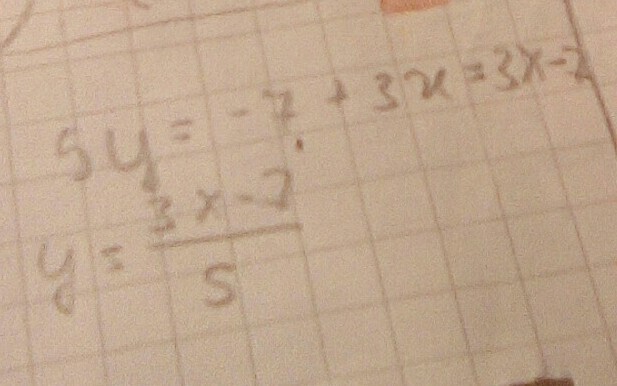 5y = -7 + 3x = 3x-7
y = \frac{3x-7}{5}